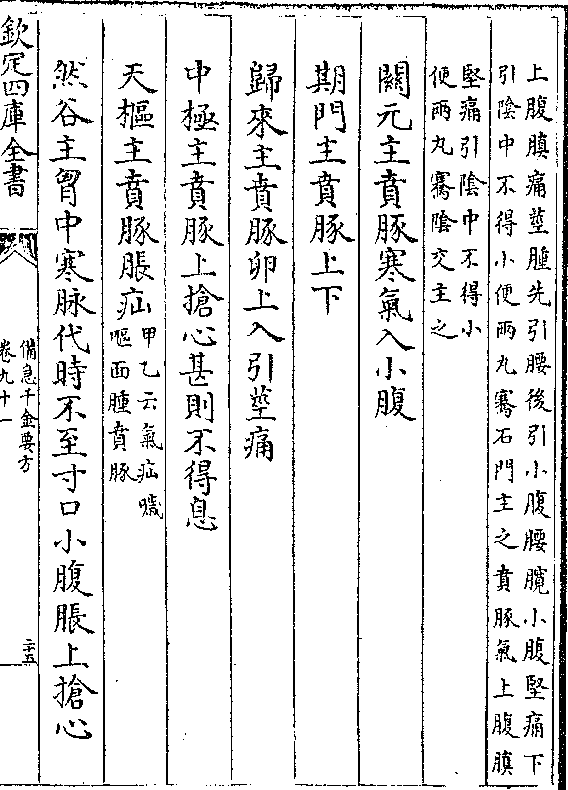 上腹䐜痛莖腫先引腰後引小腹腰髖小腹堅痛下
引陰中不得小便兩丸騫石門主之賁豚氣上腹䐜
堅痛引陰中不得小
便兩丸騫陰交主之
關元主賁豚寒氣入小腹
期門主賁豚上下
歸來主賁豚卵上入引莖痛
中極主賁豚上搶心甚則不得息
天樞主賁豚脹疝
甲乙云氣疝噦
嘔面腫賁豚
然谷主胷中寒脉代時不至寸口小腹脹上搶心
欽定四庫全書
備急千金要方
卷九十一
二十五